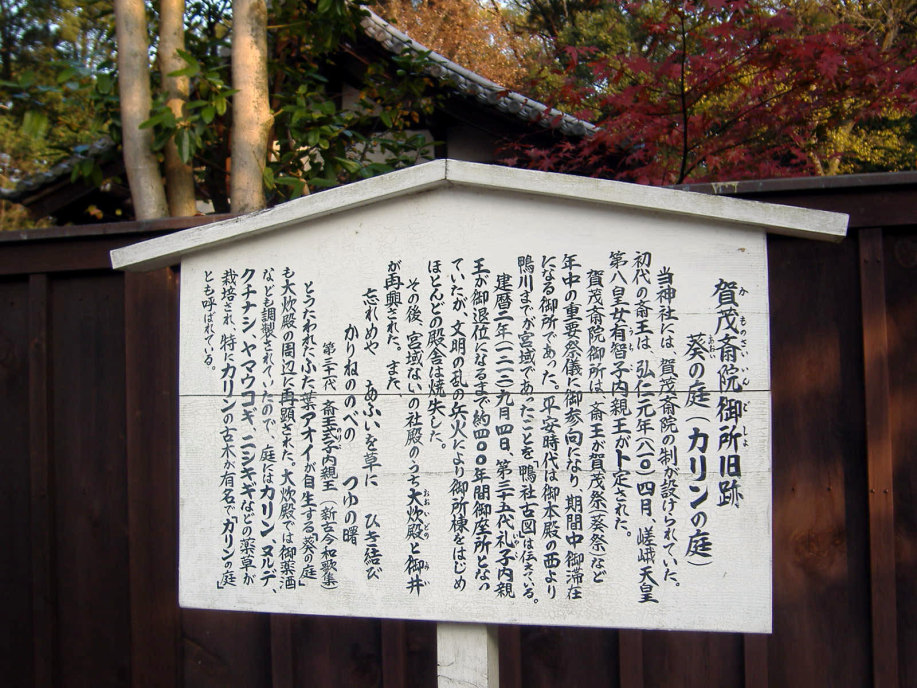 賀茂斎院御所旧跡
あれのさいいんごしょ
葵の庭(カリンの庭)
あおい にわ
当神社には、賀茂斎院の制が設けられていた。
初代斎王は、弘仁元年(八一〇)四月、嵯峨天皇
第八皇女有智子内親王が卜定された。
賀茂斎院御所は、斎王が賀茂祭(葵祭)など
年中の重要祭儀に御参向になり、期間中御滞在
になる御所であった。平安時代は御本殿の西より
鴨川までが宮域であったことを鴨社古図は伝えている。
建暦二年(一二一二)九月四日、第三十五代礼子内親
王が御退位になるまで約四〇〇年間御座所となっ
ていたが、文明の乱の兵火により御所棟をはじめ
ほとんどの殿舎は焼失した。
その後、宮域ないの社殿のうち大炊殿と御井
おおいどの みい
が再興された。また、
忘れめや あふひを草に ひき結び
かりねののべの つゆの曙
第三十一代 斎王式子内親王(新古今和歌集)
とうたわれたふた葉アオイが自生する「葵の庭」
も大炊殿の周辺に再顕された。大炊殿では御薬酒
なども調製されていたので、庭にはカリン、ヌルデ、
クチナシ、ヤマウコギ、ニシキギなどの薬草が
栽培され、特にカリンの古木が有名で「カリンの庭」
とも呼ばれている。